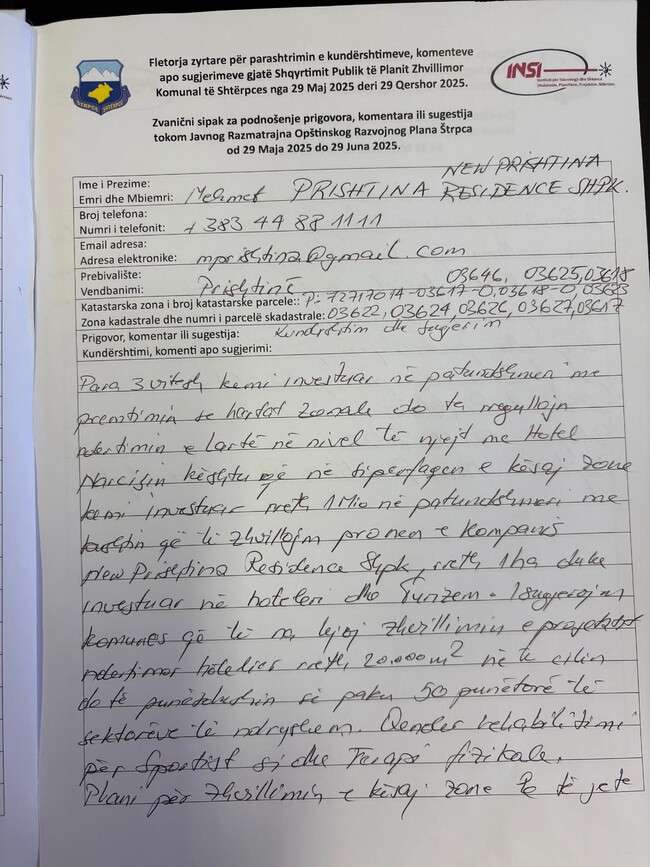 Fletorja zyrtare për parashtrimin e kundërshtimeve, komenteve
apo sugjerimeve gjatë Shqyrtimit Publik të Planit Zhvillimor
Komunal të Shtërpces nga 29 Maj 2025 deri 29 Qershor 2025.
INSI
Zvanični sipak za podnošenje prigovora, komentara ili sugestija
tokom Javnog Razmatrajna Opštinskog Razvojnog Plana Štrpca
od 29 Maja 2025 do 29 Juna 2025.
NEW PRISHTINA
Ime i Prezime:
Emri dhe Mbiemri: Mehmet PRISHTINA RESIDENCE SHPK.
Broj telefona:
Numri i telefonit: +383 44 88 1111
Email adresa:
Adresa elektronike: mprishtina@gmail.com
Prebivalište: 03646, 03625, 03618
Vendbanimi: Prishtinë
Katastarska zona i broj katastarske parcele:: P-72717014-03617-0, 03618-0, 03623
Zona kadastrale dhe numri i parcelë skadastrale: 03622, 03624, 03626, 03627, 03617
Prigovor, komentar ili sugestija: Kundërshtim dhe sugjerim
Kundërshtimi, komenti apo sugjerimi:
Para 3 vitesh kemi investuar në patundshmëri me
premtimin se hartat zonale do ta rregullojn
ndertimin e lartë në nivel të njejt me Hotel
Narcisin kështu që në siperfaqen e kësaj zone
kemi investuar rreth 1 Mio në patundshmeri me
që të zhvillojm pronen e kompanis
New Prishtina Residence Shpk, rreth 1ha duke
investuar në hoteleri dhe Turizem. I sugjerojm
komunes që të na lejoj zhvillimin e projektit
ndertimor hotelier rreth 20.000 m² në të cilin
do të punësoheshin së paku 50 punëtorë të
sektorëve të ndryshem. Qender rehabilitimi
për Sportist si dhe Terapi fizikale.
Plani për zhvillimin e kësaj zone të jetë